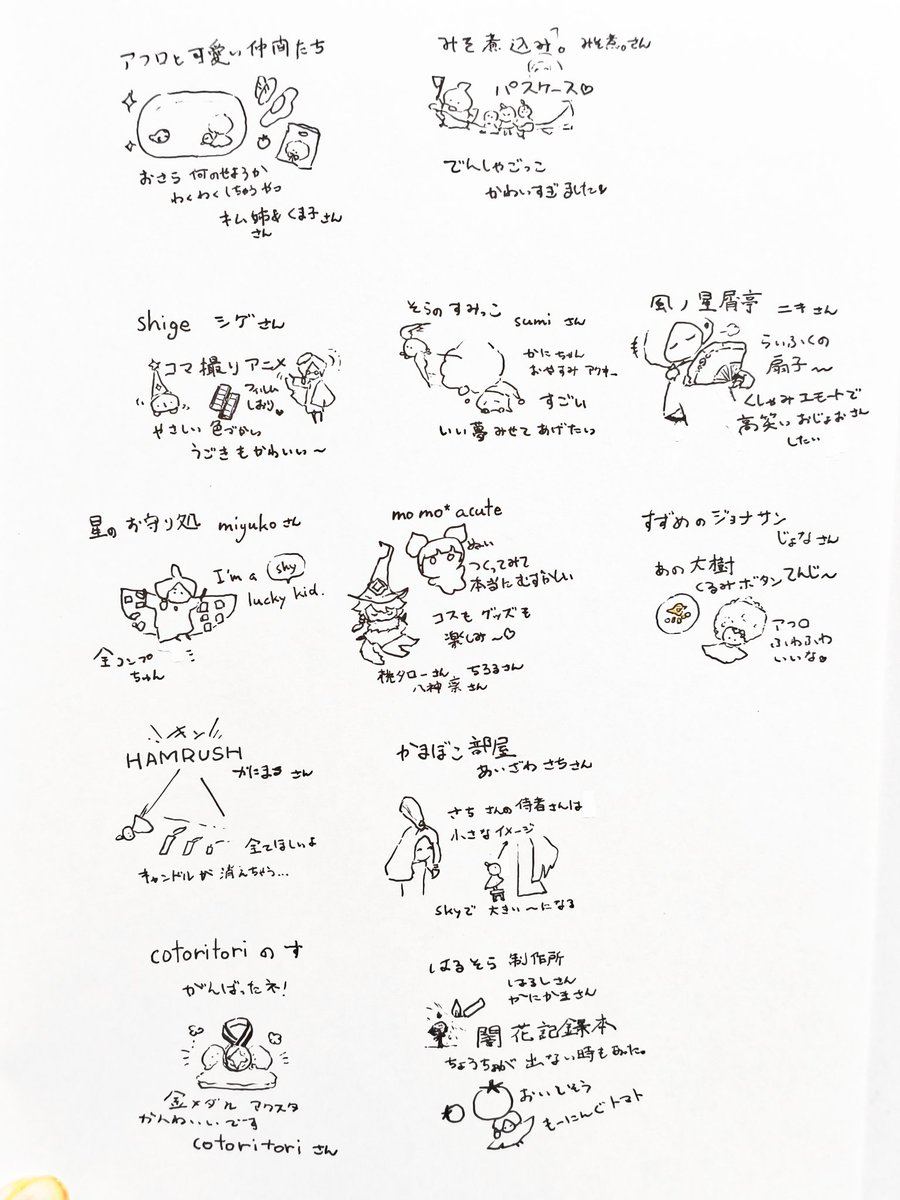 アフロと可愛い仲間たち
おさら 何のせようか
わくわくしちゃうやつ
キム姉& くま子さん
さん
みそ煮込み。 みそ煮。さん
パスケース♡
でんしゃごっこ
かわいすぎました♥
shige シゲさん
☆コマ撮りアニメ
フィルム
しおり♡
やさしい色づかい
うごきもかわいい～
そらのすみっこ
sumi さん
かにちゃん
おやすみ アクキー
すごい
いい夢みせてあげたいっ
風ノ星屑亭 ニキさん
らいふくの
扇子～
くしゃみエモートで
高笑いおじょおさん
したい
星のお守り処 miyukoさん
I'm a sky
lucky kid.
全コンプ
ちゃん
momo*acute
ぬい
つくってみて
本当にむずかしい
コスも グッズも
楽しみ～♡
桃タローさん ちろるさん
八神奈さん
すずめのジョナサン
じょなさん
あの大樹
くるみボタンてんじ～
アフロ
ふわふわ
いいな♡
キン
HAMRUSH
がにまるさん
全てほしいよ
キャンドルが消えちゃう…
かまぼこ部屋
あいざわ さちさん
さちさんの侍者さんは
小さなイメージ
skyで 大きい～になる
cotoritori のす
がんばったネ!
金メダル アクスタ
かんわいいでーす
cotoritori さん
はるそら 制作所
はるしさん
かにかまさん
闇花記録本
ちょうちょが出ない時もあった。
おいしそう
もーにんぐトマト